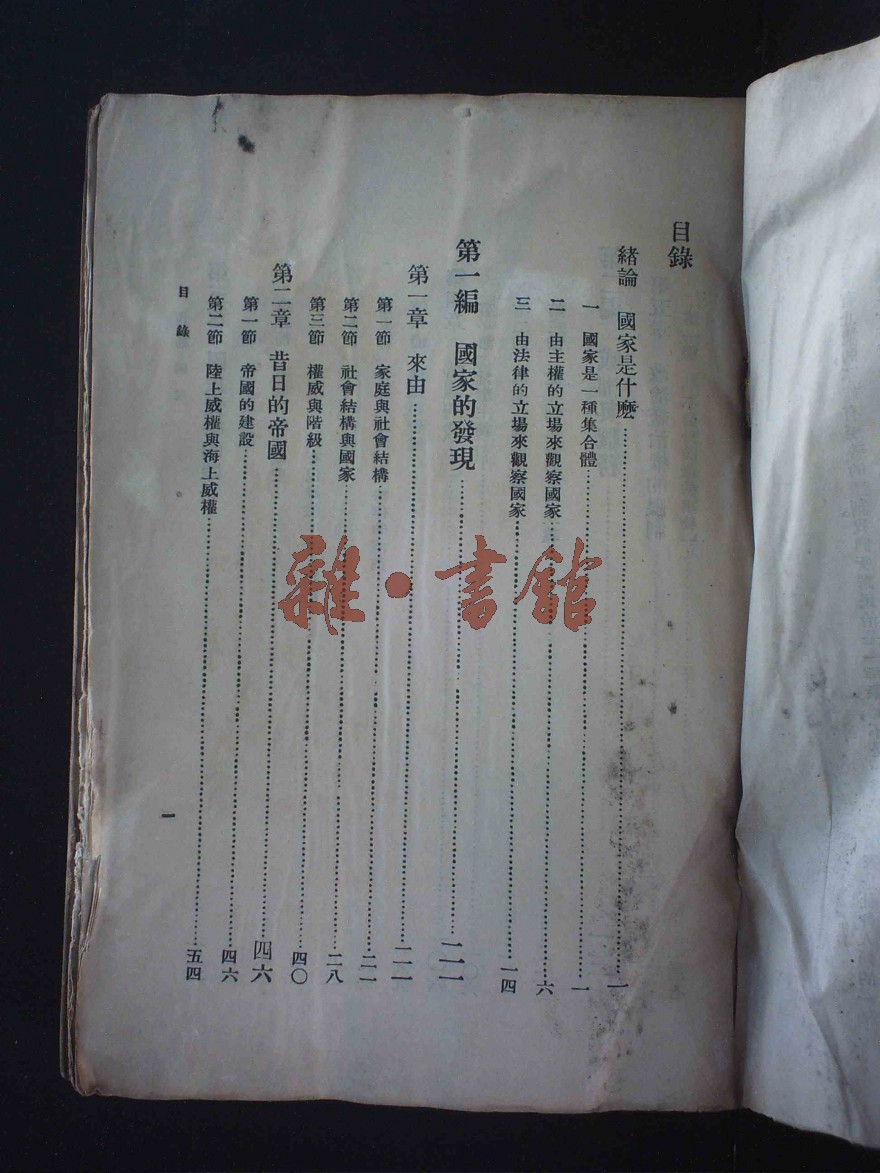 目錄
緒論 國家是什麼……一
一 國家是一種集合體……一
二 由主權的立場來觀察國家……六
三 由法律的立場來觀察國家……一四
第一編 國家的發現……二一
第一章 來由……二一
第一節 家庭與社會結構……二一
第二節 社會結構與國家……二八
第三節 權威與階級……四〇
第二章 昔日的帝國……四六
第一節 帝國的建設……四六
第二節 陸上威權與海上威權……五四
目錄
一
雜·書館